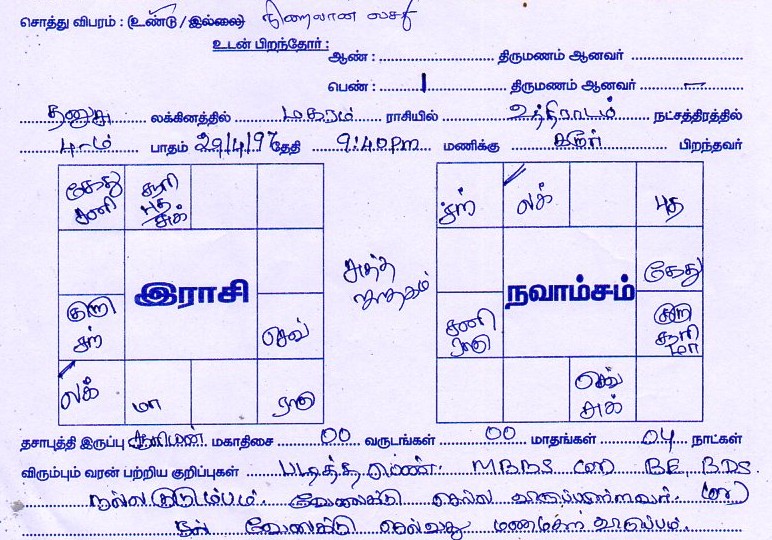 சொத்து விபரம் : (உண்டு / இல்லை) நிறைவான வசதி
உடன் பிறந்தோர் :
ஆண் : திருமணம் ஆனவர்
பெண் : 1 திருமணம் ஆனவர் —
தனுசு லக்கினத்தில் மகரம் ராசியில் உத்திராடம் நட்சத்திரத்தில்
4-ம் பாதம் 29/4/97 தேதி 9:40pm மணிக்கு கரூர் பிறந்தவர்
கேது சனி
சூரி புத சுக்
குரு சந்
இராசி
செவ்
லக்
மா
ராகு
அசல் ஜாதகம்
சந்
லக்
புத
கேது
நவாம்சம்
சனி ராகு
குரு சூரி மா
செவ் சுக்
தசாபுத்தி இருப்பு சூரியன் மகாதிசை 00 வருடங்கள் 00 மாதங்கள் 04 நாட்கள்
விரும்பும் வரன் பற்றிய குறிப்புகள் படித்த பெண். MBBS (or) BE, BDS.
நல்ல குடும்பம். வேலைக்கு செல்ல விருப்பமுள்ளவர். (or)
வேலைக்கு செல்வது மணமகள் விருப்பம்.